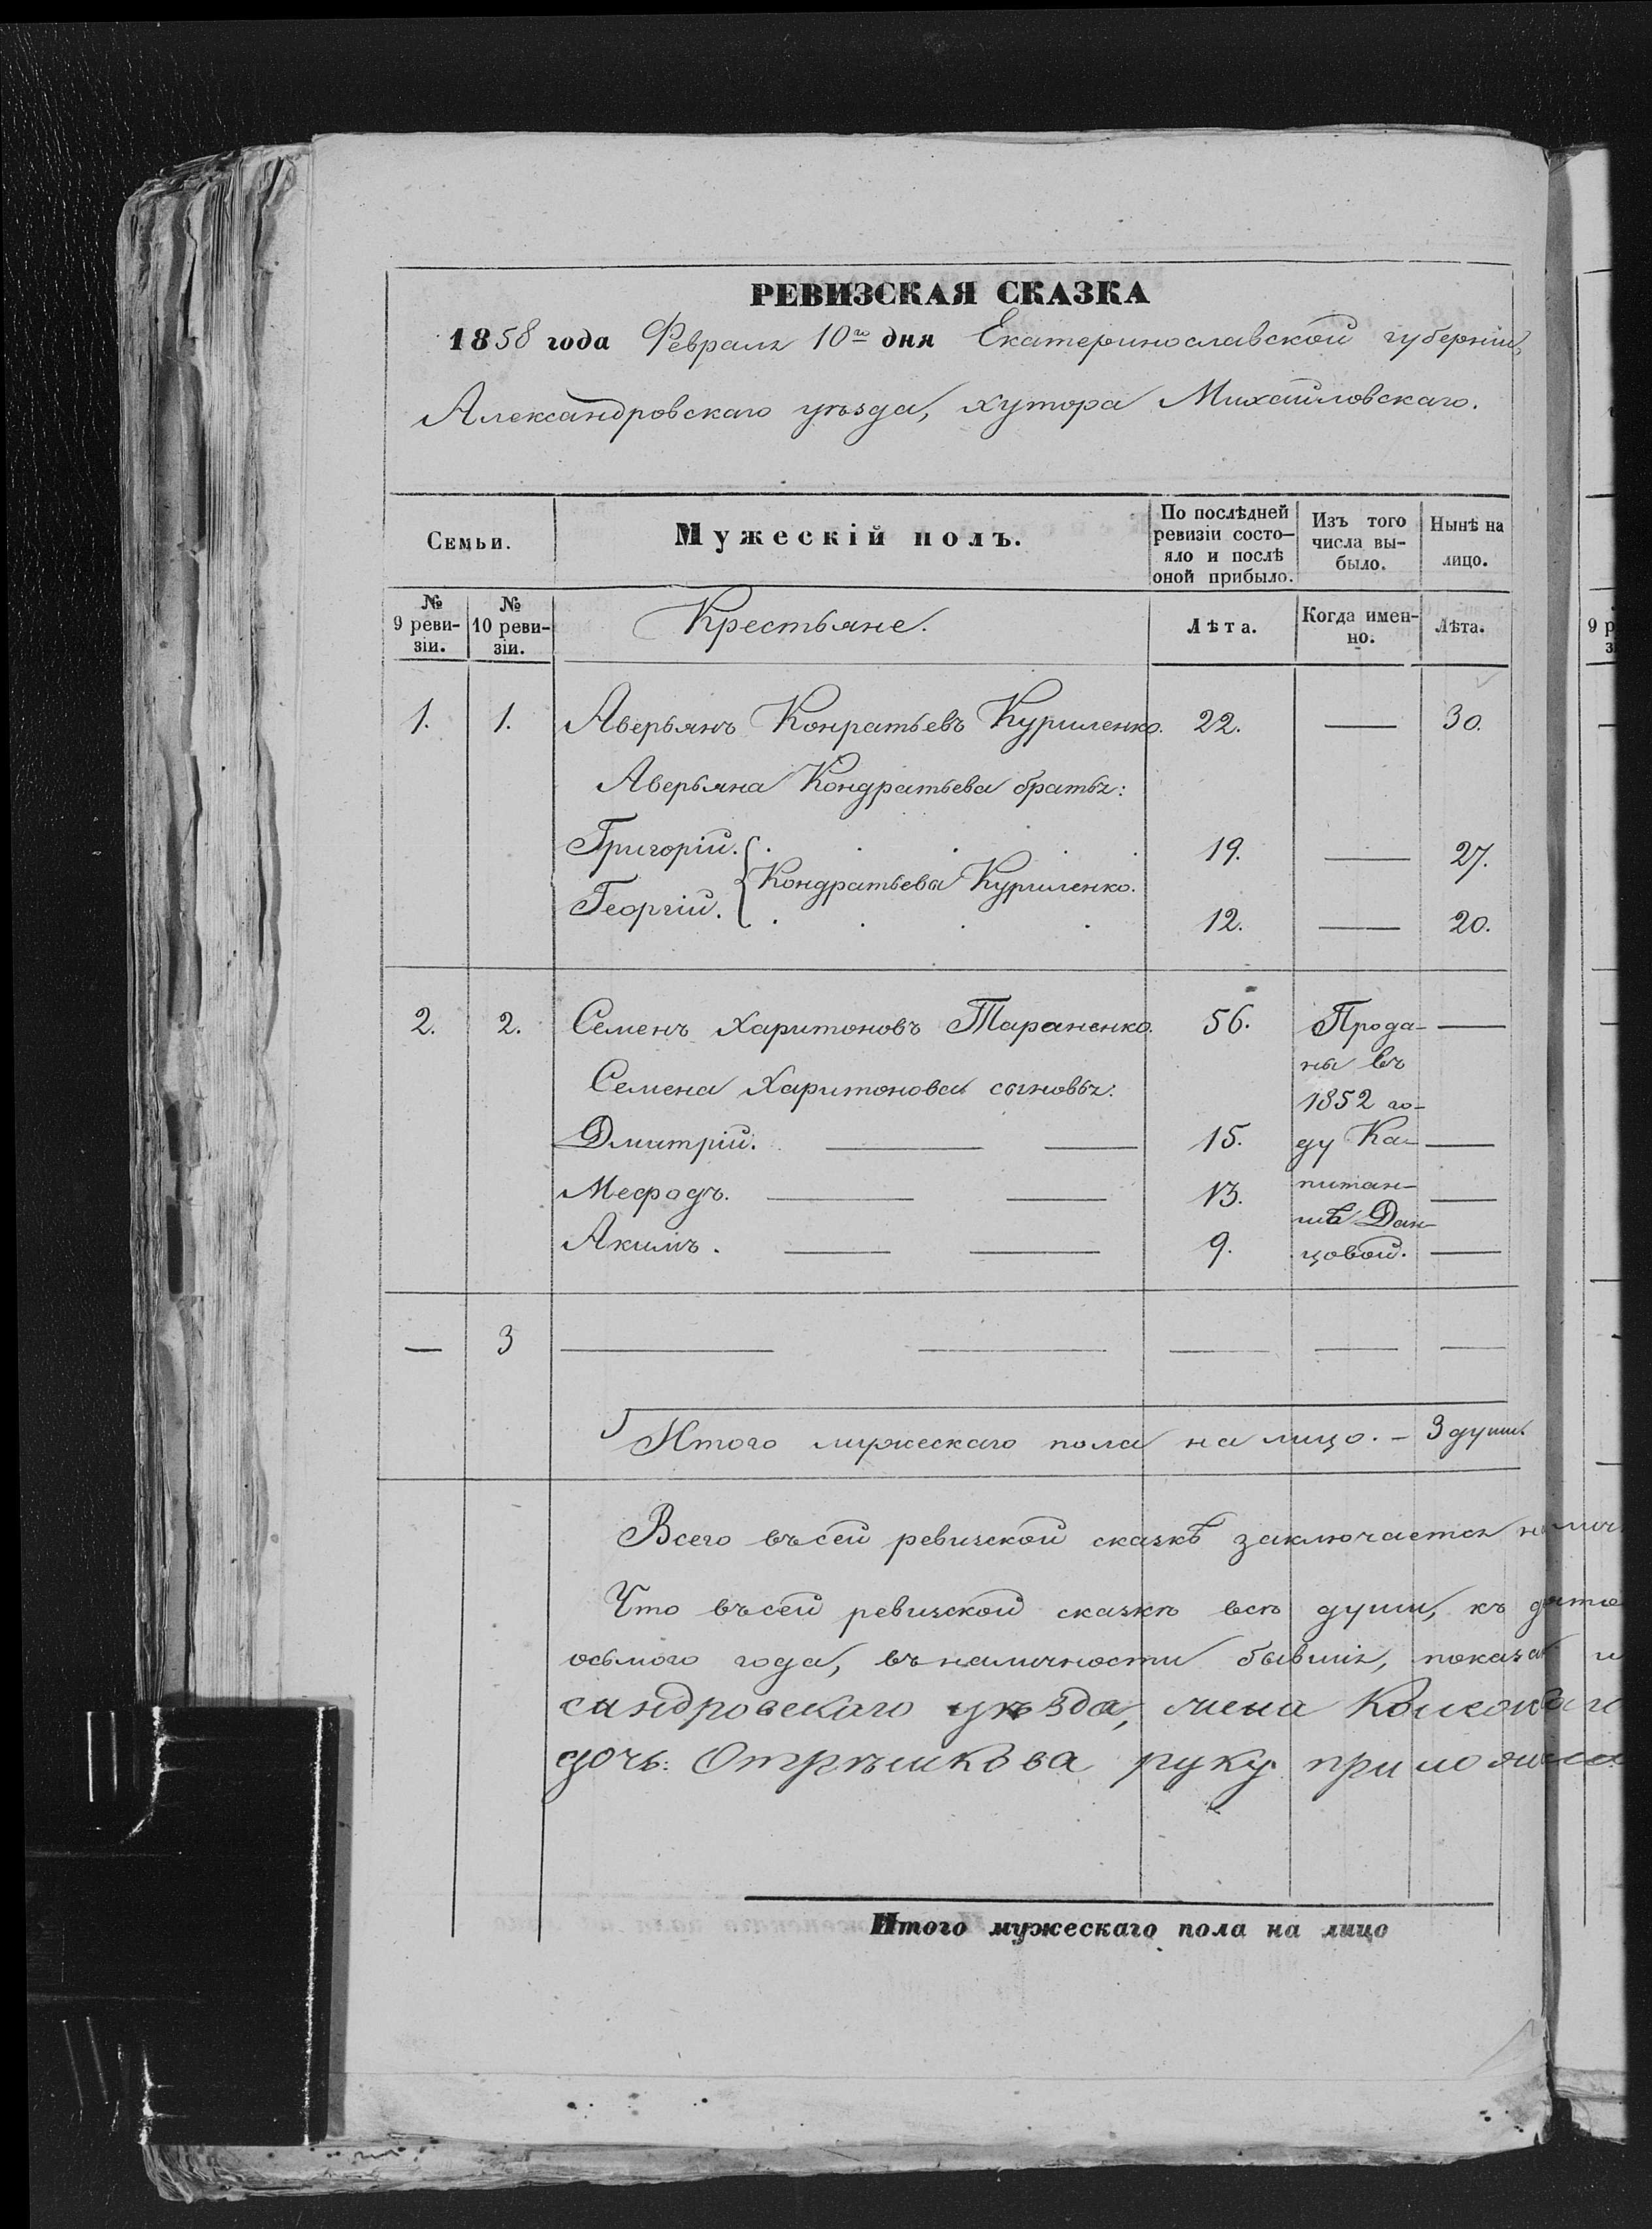 РЕВИЗСКАЯ СКАЗКА
1858 года Февраля 10го дня Екатеринославской губерніи,
Александровскаго уѣзда, хутора Михайловскаго.
Семьи.
Мужескій полъ.
По послѣдней
ревизіи состо-
яло и послѣ
оной прибыло.
Изъ того
числа вы-
было.
Нынѣ на
лицо.
№
9 реви-
зіи.
№
10 реви-
зіи.
Крестьяне.
Лѣта.
Когда имен-
но.
Лѣта.
9 р
1. 1. Аверьянъ Конратьевъ Куриленко. 22. — 30.
Аверьяна Кондратьева братья:
Григорій. 19. — 27.
Кондратьева Куриленко.
Георгій. 12. — 20.
2. 2. Семенъ Харитоновъ Тараненко. 56. Прода- —
ны въ
Семена Харитонова сыновья:
1852 го-
Дмитрій. — — 15. ду Ка- —
Мефодъ. — — 13. питан- —
шѣ Дан-
Акимъ. — — 9. цовой. —
— 3 — — — — —
Итого мужескаго пола на лицо. — 3 души
Всего въ сей ревизской сказкѣ заключается
Что въ сей ревизской сказкѣ всѣ души, къ
осьмого года, въ наличности бывшія, показа
сандровскаго уѣзда, жена
дочь: Отрѣшкова руку приложила
Итого мужескаго пола на лицо